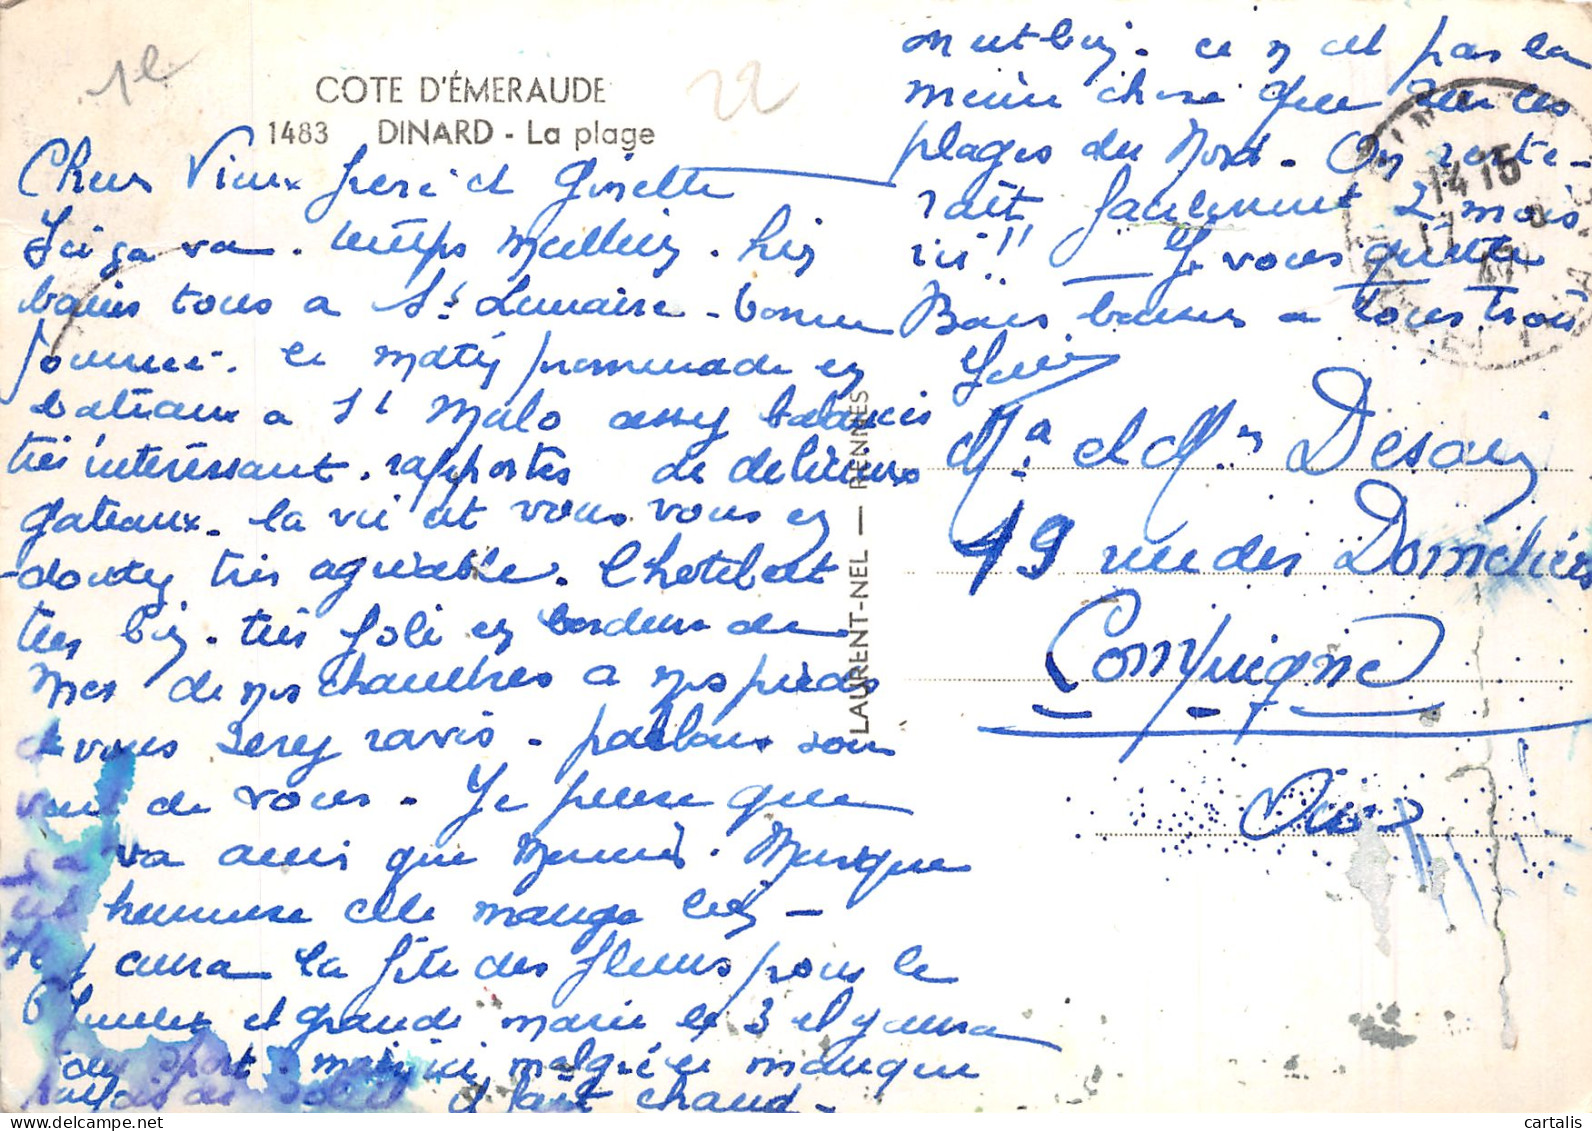 1e
22
COTE D'ÉMERAUDE
1483 DINARD - La plage
Cher Vieux frère et Ginette
Ici ça va. temps meilleur. hier
bains tous a St Lunaire - bonne
journée. ce matin promenade en
bateaux a St Malo assez balancés
très intéressant. rapportés de délicieux
gateaux. la vie est vous vous en
doutez très agréable. l'hotel est
très bien. très joli en bordure de
mer de nos chambres a nos pieds
vous serez ravis. parlons sou
vent de vous. Je pense que
va ainsi que Mémé. Monique
heureuse elle mange bien -
y aura la fête des fleurs pour le
et grande marée le 3 et y aura
du sport. mais ici malgré ce manque
de soleil il fait chaud -
on est bien. ce n'est pas la
même chose que sur les
plages du Nord. On reste-
rait facilement 2 mois
ici!! Je vous quitte
Bons baisers a tous trois
LAURENT-NEL — RENNES
14 15
17
Mr et Mme Desain
19 rue des Domeliers
Compiègne
Oise
cartalis